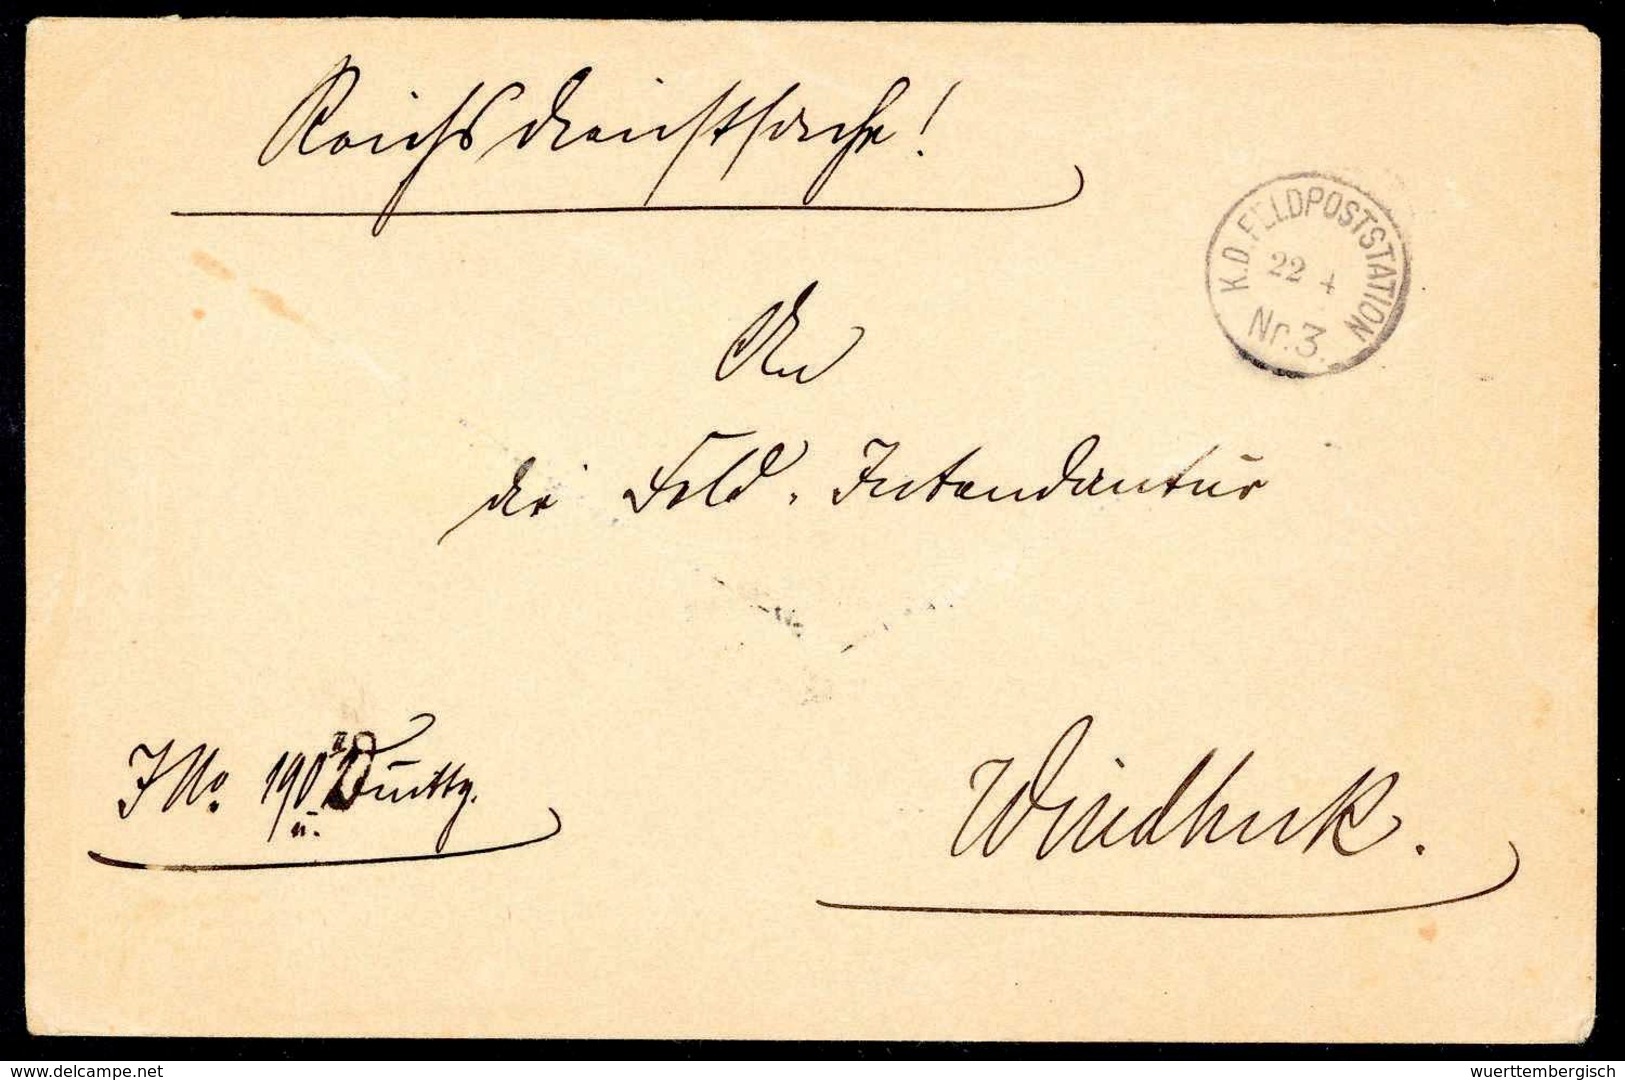 Reichsdienstsache!
K.D. FELDPOSTSTATION
22 4
Nr. 3.
An
die Feld-Intendantur
J No. 190
u.
Windhuk.
delcampe.net
wuerttembergisch